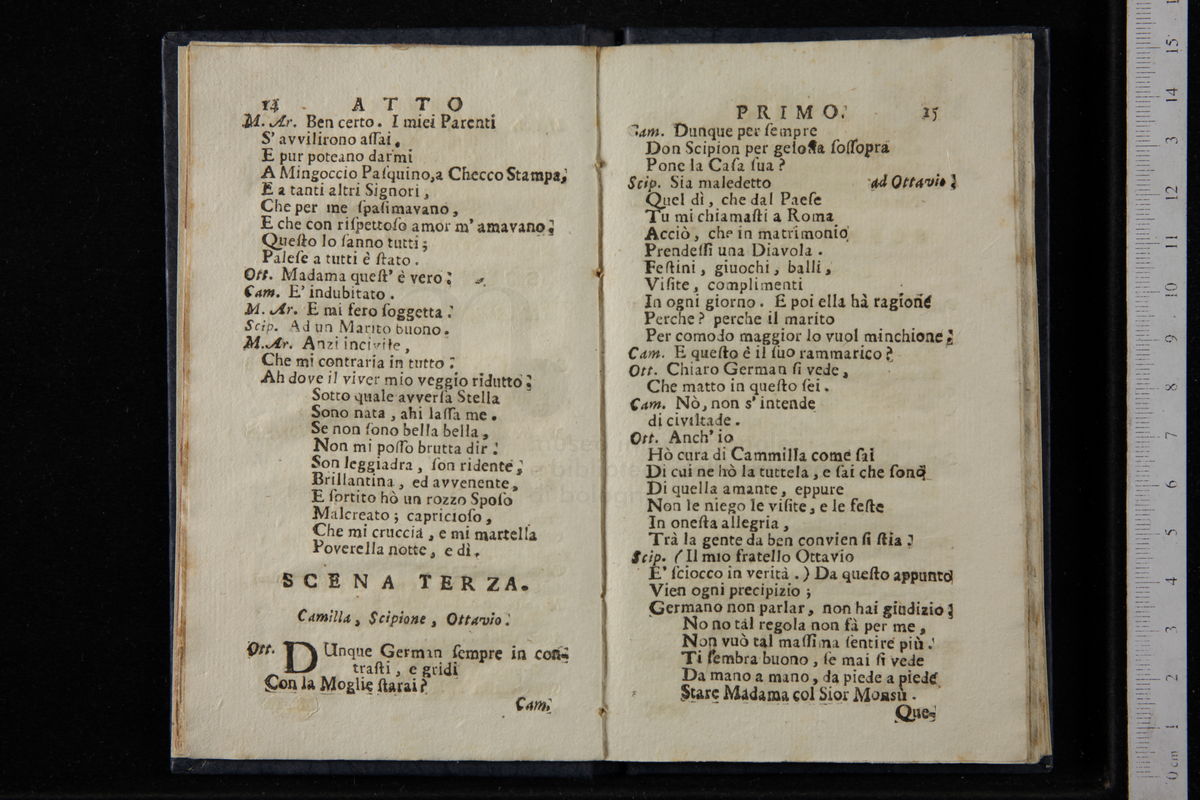 14 ATTO
M. Ar. Ben certo. I miei Parenti
S' avvilirono aſſai.
E pur poteano darmi
A Mingoccio Paſquino, a Checco Stampa,
E a tanti altri Signori,
Che per me ſpaſimavano,
E che con riſpettoſo amor m' amavano.
Queſto lo ſanno tutti;
Paleſe a tutti è ſtato.
Ott. Madama queſt' è vero.
Cam. E' indubitato.
M. Ar. E mi fero ſoggetta.
Scip. Ad un Marito buono.
M. Ar. Anzi incivile,
Che mi contraria in tutto.
Ah dove il viver mio veggio ridutto!
Sotto quale avverſa Stella
Sono nata, ahi laſſa me.
Se non ſono bella bella,
Non mi poſſo brutta dir.
Son leggiadra, ſon ridente,
Brillantina, ed avvenente,
E ſortito hò un rozzo Spoſo
Malcreato; capricioſo,
Che mi cruccia, e mi martella
Poverella notte, e dì.
SCENA TERZA.
Camilla, Scipione, Ottavio.
Ott. DUnque German ſempre in con-
traſti, e gridi
Con la Moglie ſtarai?
Cam.
PRIMO. 15
Cam. Dunque per ſempre
Don Scipion per geloſia ſoſſopra
Pone la Caſa ſua?
Scip. Sia maledetto ad Ottavio.
Quel dì, che dal Paeſe
Tu mi chiamaſti a Roma
Acciò, che in matrimonio
Prendeſſi una Diavola.
Feſtini, giuochi, balli,
Viſite, complimenti
In ogni giorno. E poi ella hà ragione
Perche? perche il marito
Per comodo maggior lo vuol minchione.
Cam. E queſto è il ſuo rammarico?
Ott. Chiaro German ſi vede,
Che matto in queſto ſei.
Cam. Nò, non s' intende
di civiltade.
Ott. Anch' io
Hò cura di Cammilla come ſai
Di cui ne hò la tuttela, e ſai che ſono
Di quella amante, eppure
Non le niego le viſite, e le feſte
In oneſta allegria,
Trà la gente da ben convien ſi ſtia.
Scip. (Il mio fratello Ottavio
E' ſciocco in verità.) Da queſto appunto
Vien ogni precipizio;
Germano non parlar, non hai giudizio.
No no tal regola non fà per me,
Non vuò tal maſſima ſentire più.
Ti ſembra buono, ſe mai ſi vede
Da mano a mano, da piede a piede
Stare Madama col Sior Monsù.
Que-